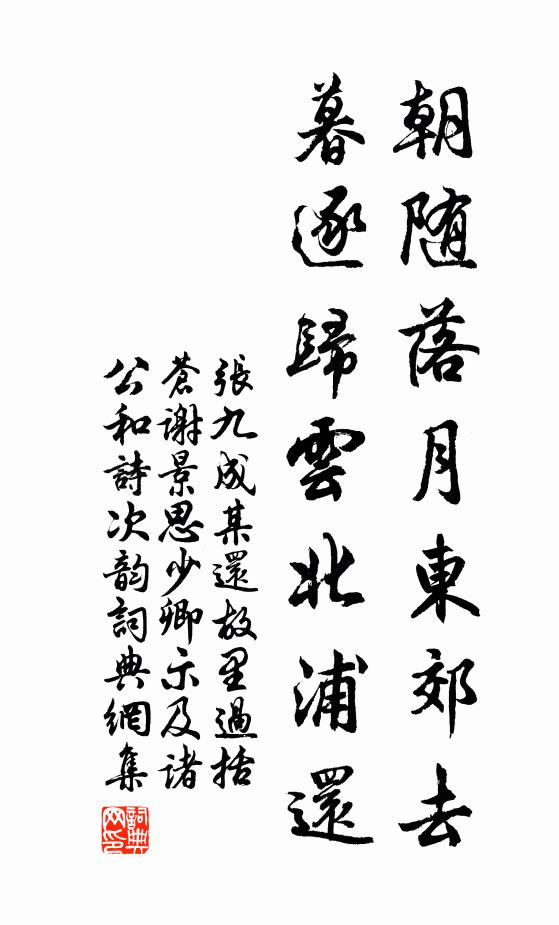 朝随落月東郊去
暮逐歸雲北浦還
張九成某還故里過括
蒼謝景思少卿示及諸
公和詩次韵詞典網集
詞典
网印